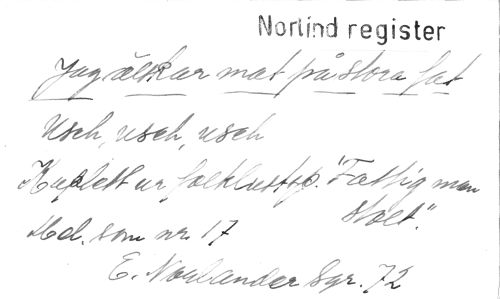 Norlind register
Jag älskar mat på stora fat
Usch, usch, usch
Kuplett ur folklustsp. "Fattig man
stolt".
Md. som nr. 17
E. Norlander Sgr. 72